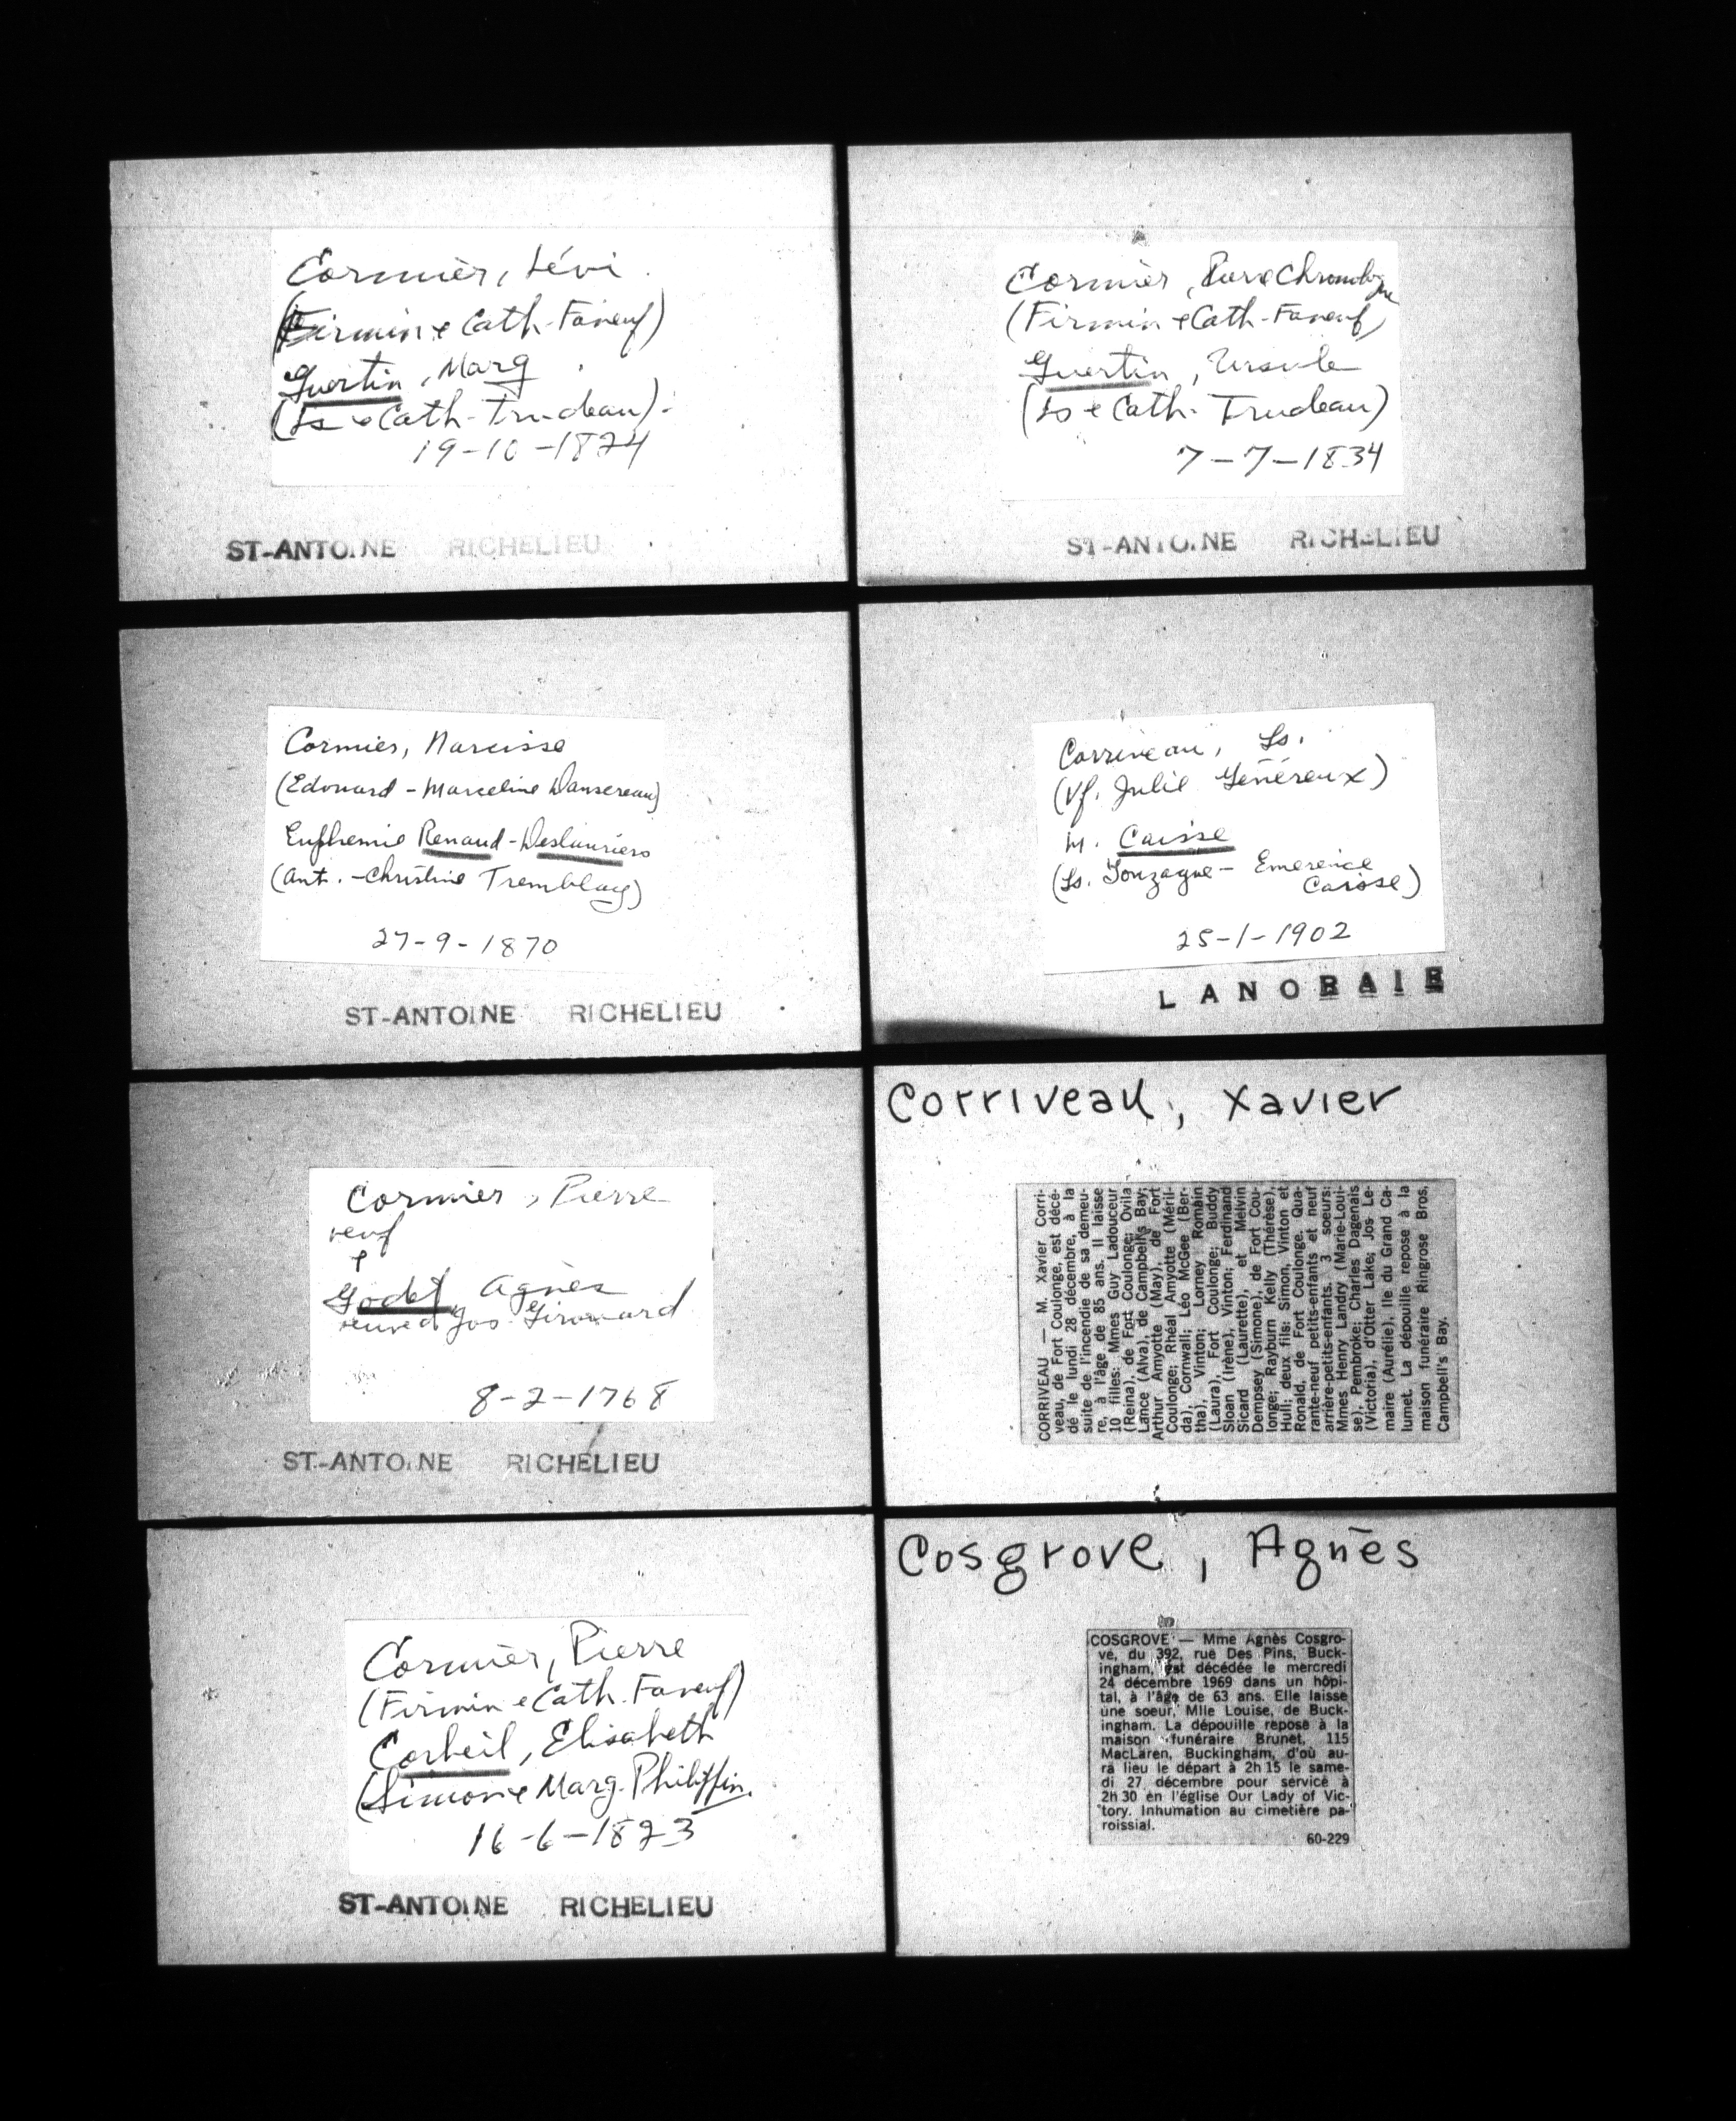 Cormier, Lévi
(Firmin & Cath. Faneuf)
Guertin, Marg
(Ls & Cath. Trudeau).
19-10-1824
ST-ANTOINE RICHELIEU
Cormier, Narcisse
(Edouard - Marceline Dansereau)
Euphemie Renaud-Deslauriers
(Ant. - Christine Tremblay)
27-9-1870
ST-ANTOINE RICHELIEU
Cormier, Pierre
veuf
&
Godet, Agnès
veuve d Jos. Girouard
8-2-1768
ST-ANTOINE RICHELIEU
Cormier, Pierre
(Firmin & Cath. Faneuf)
Corbeil, Elisabeth
(Simon & Marg. Philippin.
16-6-1823
ST-ANTOINE RICHELIEU
Cormier, Pierre
(Firmin & Cath. Faneuf)
Guertin, Ursule
(Ls & Cath. Trudeau)
7-7-1834
ST-ANTOINE RICHELIEU
Corriveau, Ls.
(Vf. Julie Généreux)
M. Caisse
(Ls. Gonzague - Emerence
Caisse)
25-1-1902
LANORAIE
Corriveau, Xavier
CORRIVEAU — M. Xavier Corri-
veau, de Fort Coulonge, est décé-
dé le lundi 28 décembre, à la
suite de l'incendie de sa demeu-
re, à l'âge de 85 ans. Il laisse
10 filles: Mmes Guy Ladouceur
(Reina), de Fort Coulonge; Ovila
Lance (Alva), de Campbells Bay;
Arthur Amyotte (May), de Fort
Coulonge; Rhéal Amyotte (Méril-
da), Cornwall; Léo McGee (Ber-
tha), Vinton; Lorney Romain
(Laura), Fort Coulonge; Buddy
Sloan (Irène), Vinton; Ferdinand
Sicard (Laurette), et Melvin
Dempsey (Simone), de Fort Cou-
longe; Rayburn Kelly (Thérèse),
Hull; deux fils: Simon, Vinton et
Ronald, de Fort Coulonge. Qua-
rante-neuf petits-enfants et neuf
arrière-petits-enfants. 3 soeurs:
Mmes Henry Landry (Marie-Loui-
se), Pembroke; Charles Dagenais
(Victoria), d'Otter Lake; Jos Le-
maire (Aurélie), Ile du Grand Ca-
lumet. La dépouille repose à la
maison funéraire Ringrose Bros,
Campbell's Bay.
Cosgrove, Agnès
COSGROVE — Mme Agnès Cosgro-
ve, du 392, rue Des Pins, Buck-
ingham, est décédée le mercredi
24 décembre 1969 dans un hôpi-
tal, à l'âge de 63 ans. Elle laisse
une soeur, Mlle Louise, de Buck-
ingham. La dépouille repose à la
maison funéraire Brunet, 115
MacLaren, Buckingham, d'où au-
ra lieu le départ à 2h 15 le same-
di 27 décembre pour service à
2h 30 en l'église Our Lady of Vic-
tory. Inhumation au cimetière pa-
roissial.
60-229